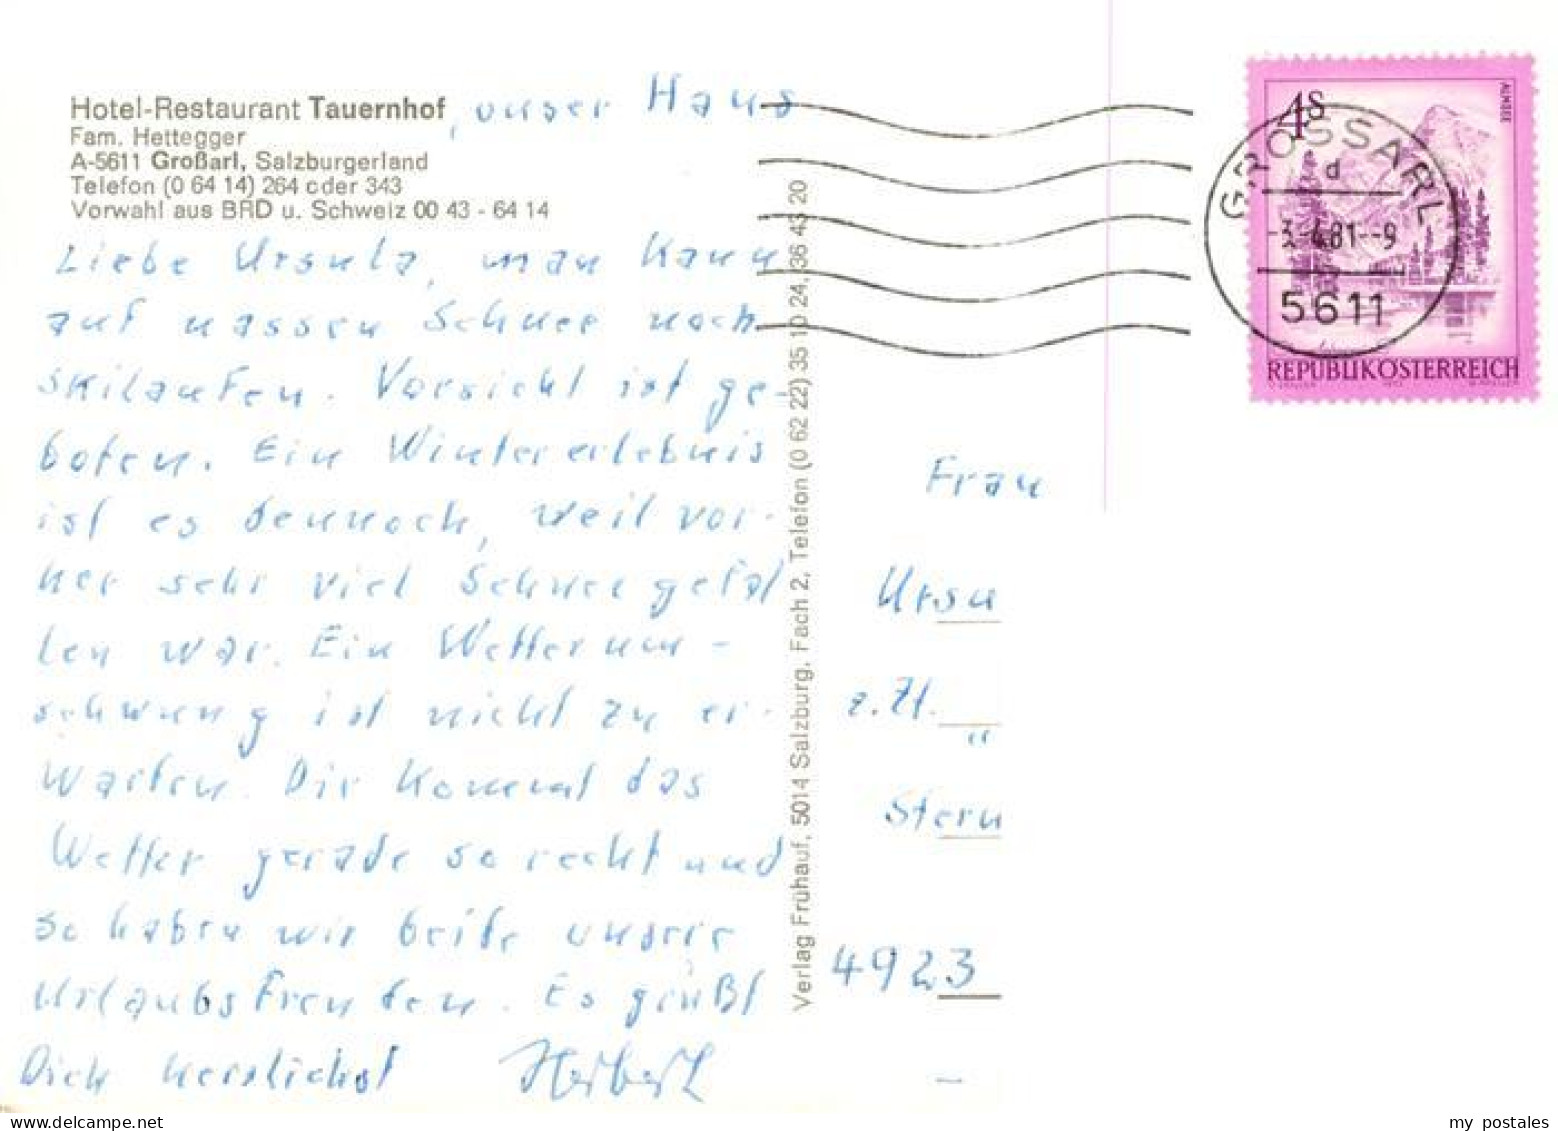 Hotel-Restaurant Tauernhof, unser Haus
Fam. Hettegger
A-5611 Großarl, Salzburgerland
Telefon (0 64 14) 264 oder 343
Vorwahl aus BRD u. Schweiz 00 43 - 64 14
Liebe Ursula, man kann
auf nassen Schnee noch
skilaufen. Vorsicht ist ge-
boten. Ein Wintererlebnis
ist es dennoch, weil vor-
her sehr viel Schnee gefal
len war. Ein Wetterum-
schwung ist nicht zu er-
warten. Dir kommt das
Wetter gerade so recht und
so haben wir beide unsere
Urlaubsfreuden. Es grüßt
Dich herzlichst Herbert
Verlag Frühauf, 5014 Salzburg, Fach 2, Telefon (0 62 22) 35 10 24, 36 43 20
4S
ALMSEE
REPUBLIK ÖSTERREICH
GROSSARL
d
-3.-4.81--9
5611
Frau
Ursu
z. Zt.
Stern
4923
my postales